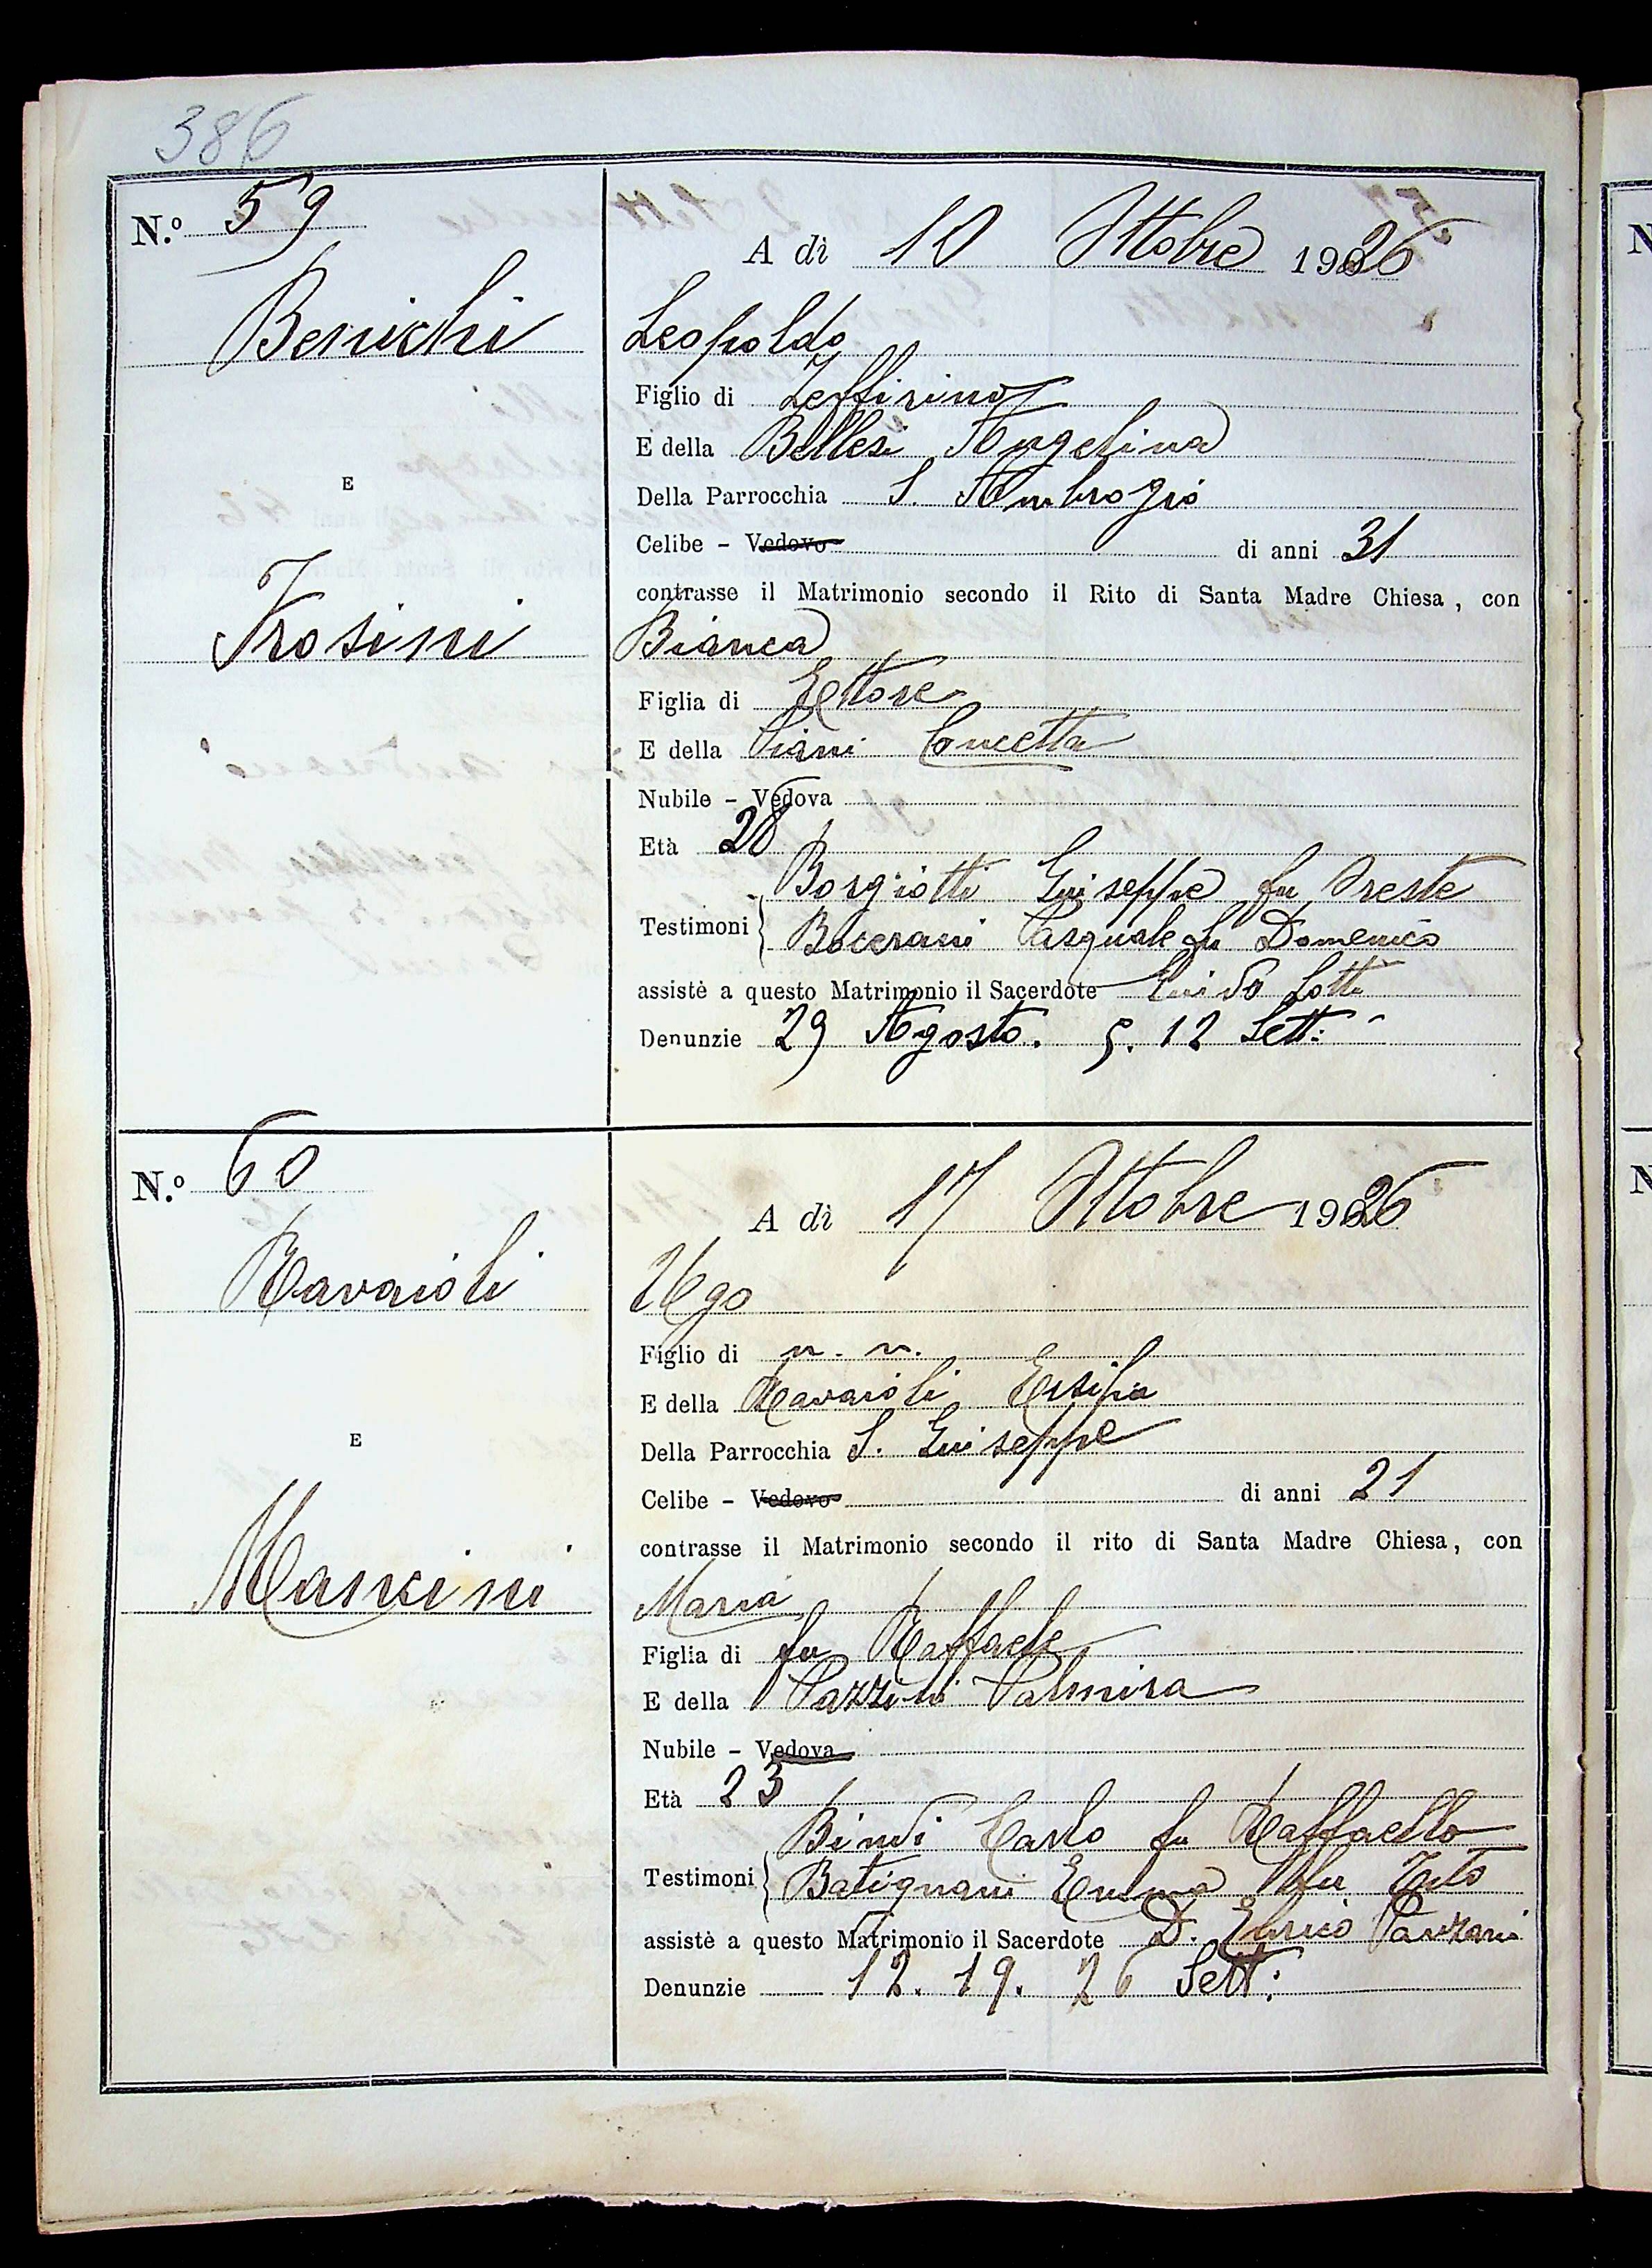 386
N.º 59
A dì 10 Ottobre 1926
Benichi
Leopoldo
Figlio di Zeffirino
E della Bellesi Angelina
Della Parrocchia S. Ambrogio
E
Celibe - Vedovo di anni 31
contrasse il Matrimonio secondo il Rito di Santa Madre Chiesa, con
Frosini
Bianca
Figlia di Ettore
E della Piani Concetta
Nubile - Vedova
Età 28
Testimoni { Borgiotti Giuseppe fu Oreste
Bocerani Pasquale fu Domenico
assistè a questo Matrimonio il Sacerdote Guido Lotti
Denunzie 29 Agosto. 5. 12 Sett:
N.º 60
A dì 17 Ottobre 1926
Ravaioli
Ugo
Figlio di n. n.
E della Ravaioli Ersilia
E
Della Parrocchia S. Giuseppe
Celibe - Vedovo di anni 21
contrasse il Matrimonio secondo il rito di Santa Madre Chiesa, con
Mancini
Maria
Figlia di fu Raffaele
E della Pazzini Palmira
Nubile - Vedova
Età 23
Testimoni { Bindi Carlo fu Raffaello
Batignani Emma fu Tito
assistè a questo Matrimonio il Sacerdote D. Enrico
Denunzie 12. 19. 26 Sett:
N
N